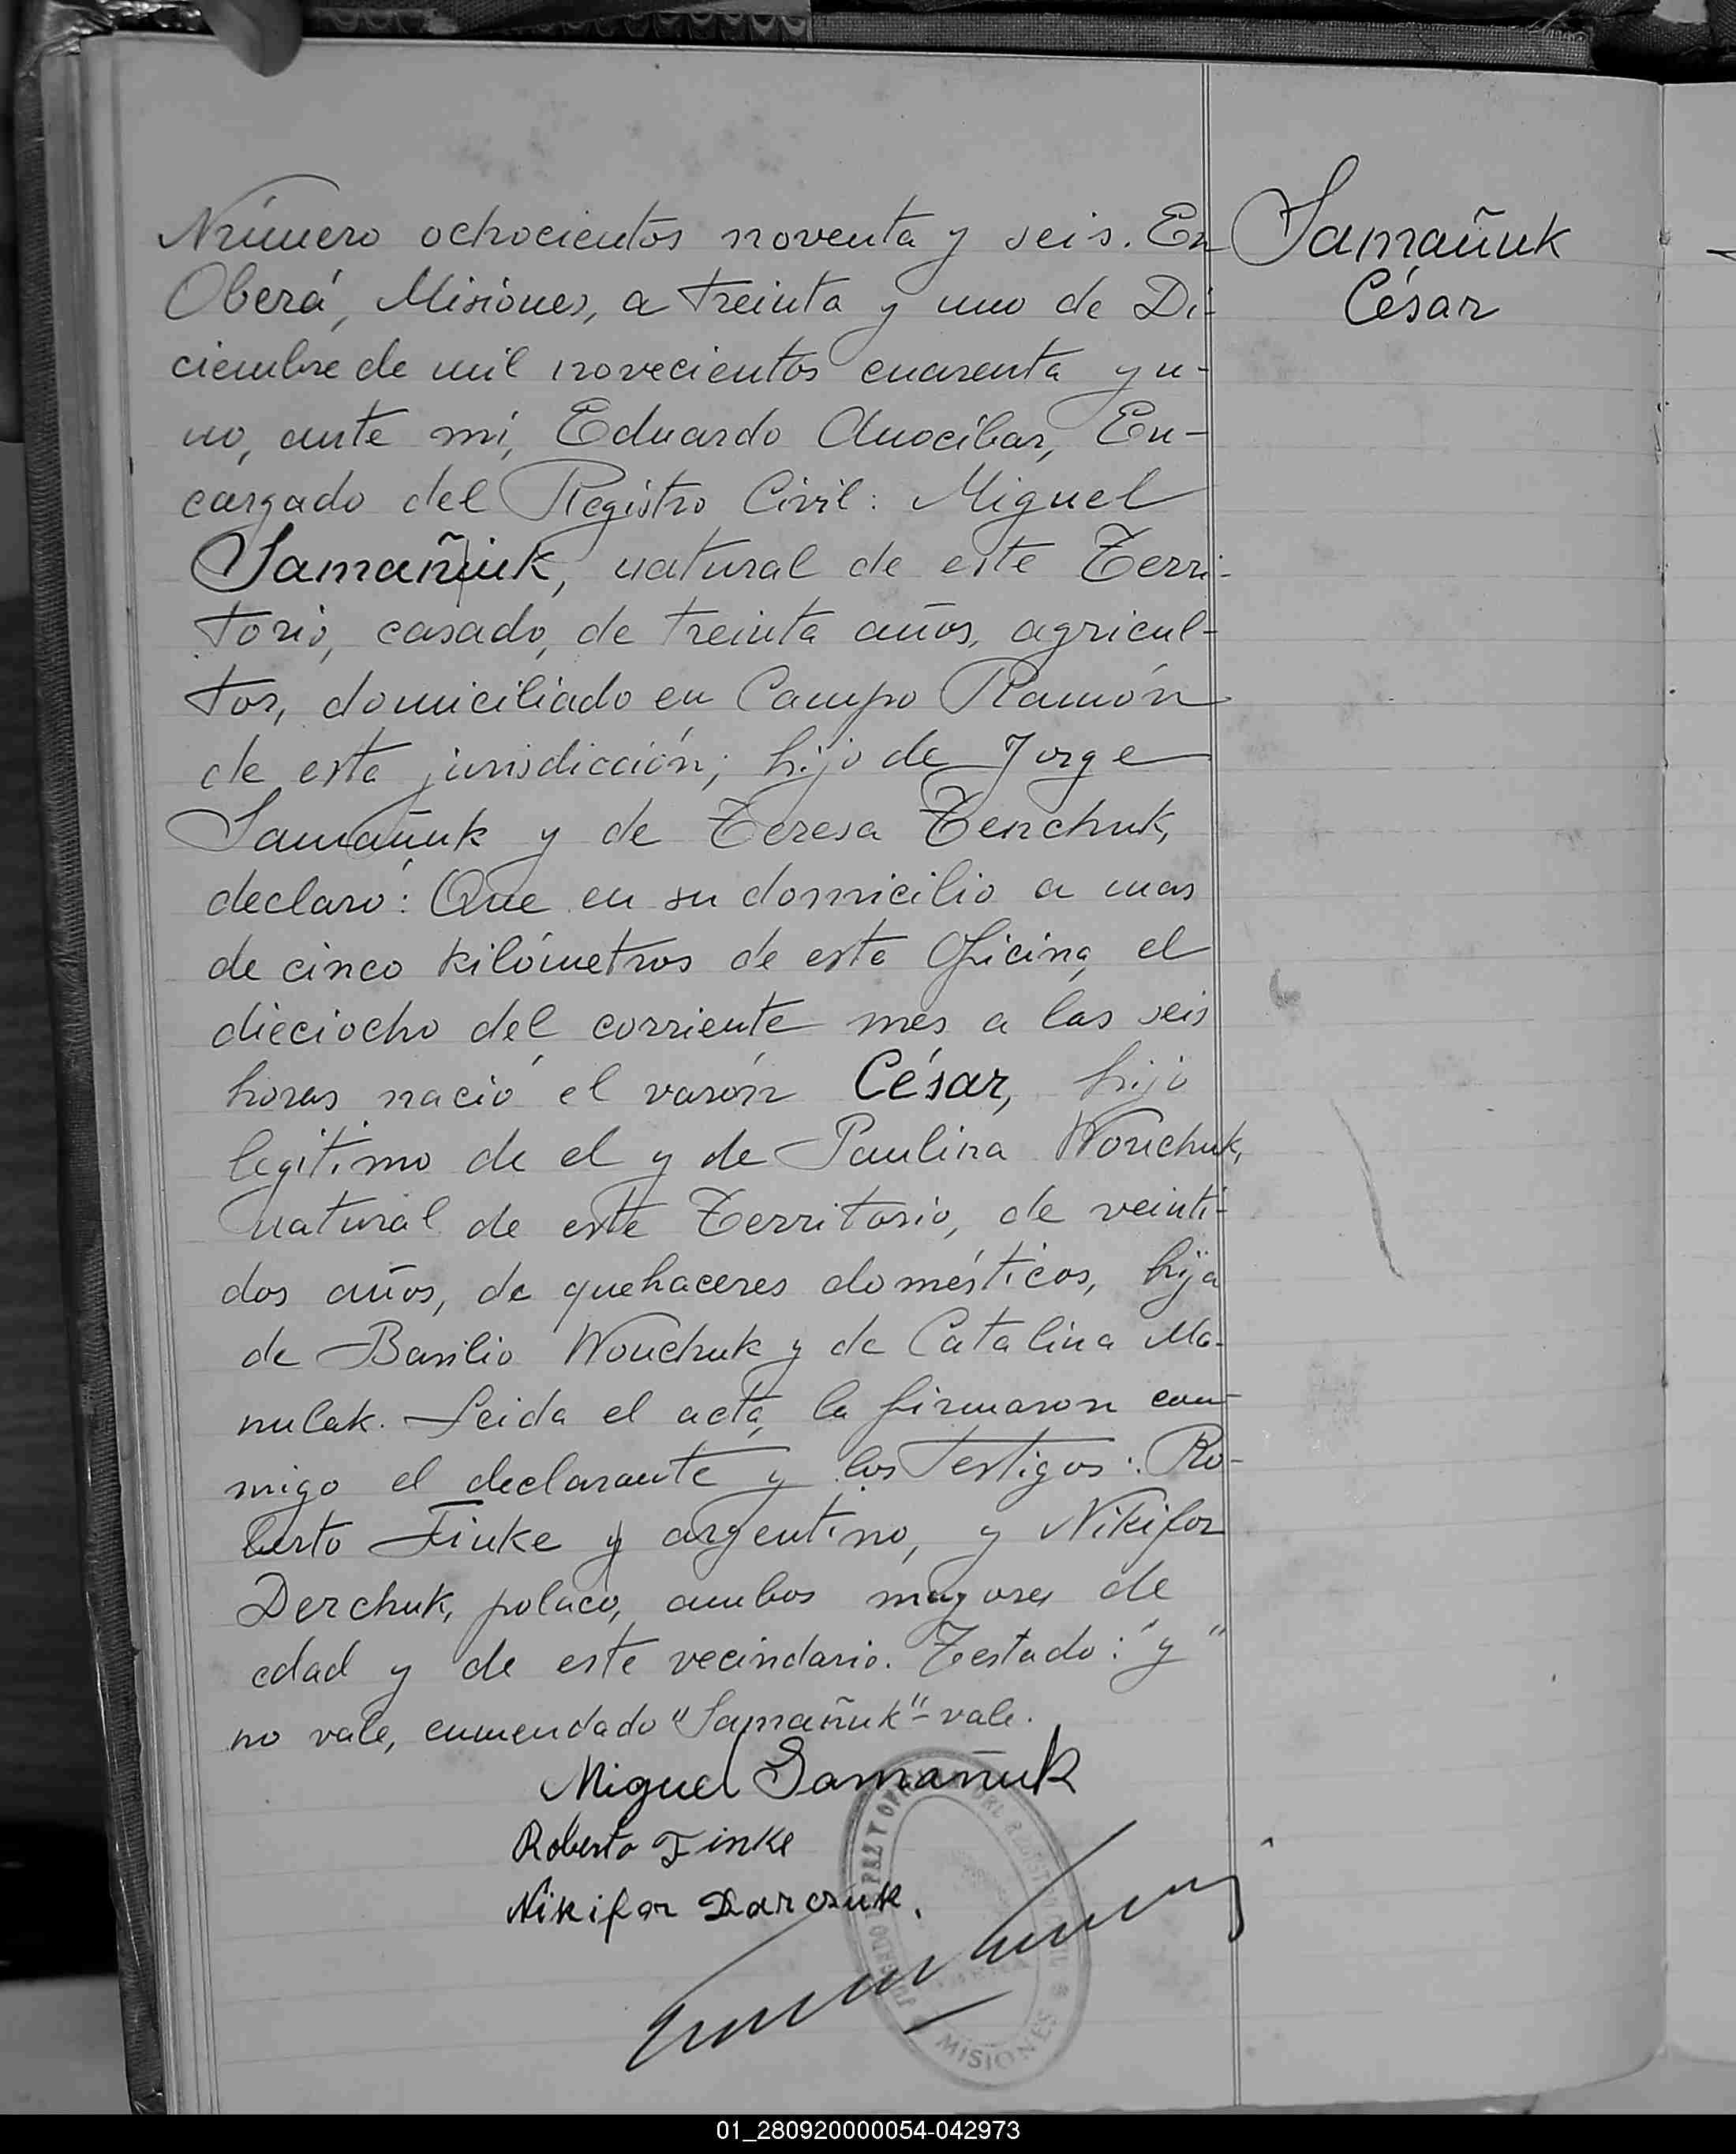 Número ochocientos noventa y seis. En
Oberá, Misiones, a treinta y uno de Di-
ciembre de mil novecientos cuarenta y u-
no, ante mí, Eduardo Anocibar, En-
cargado del Registro Civil: Miguel
Samañuk, natural de este Terri-
torio, casado, de treinta años, agricul-
tor, domiciliado en Campo Ramón
de esta jurisdicción; hijo de Jorge
Samañuk y de Teresa Tenchuk,
declaró: Que en su domicilio a mas
de cinco kilómetros de esta Oficina, el
dieciocho del corriente mes a las seis
horas nació el varón César, hijo
legitimo de el y de Paulina Wonchuk,
natural de este Territorio, de veinti-
dos años, de quehaceres domésticos, hija
de Basilio Wonchuk y de Catalina Ma-
nulak. Leida el acta, la firmaron con-
migo el declarante y los testigos: Ro-
berto Finke y argentino, y Nikifor
Derchuk, polaco, ambos mayores de
edad y de este vecindario. Testado: "y"
no vale, enmendado "Samañuk" - vale.
Miguel Samañuk
Roberto Finke
Nikifor Darczuk.
Samañuk
César
MISIONES
01_280920000054-042973